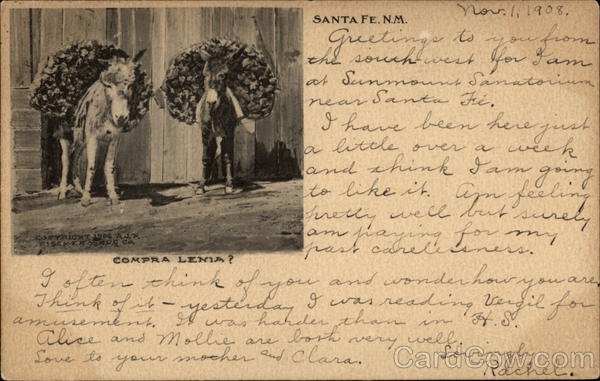 SANTA FE, N.M.
Nov. 1, 1908.
Greetings to you from
the south-west for I am
at Sunmount Sanatorium
near Santa Fé.
I have been here just
a little over a week
and think I am going
to like it. Am feeling
pretty well but surely
am paying for my
past carelessness.
COPYRIGHT 1905 A.J.
FISCHER DRUG CO.
COMPRA LENIA?
I often think of you and wonder how you are.
Think of it – yesterday I was reading Vergil for
amusement. It was harder than in H.S.
Alice and Mollie are both very well.
Love to your mother and Clara.
Rachel.
CardCow.com